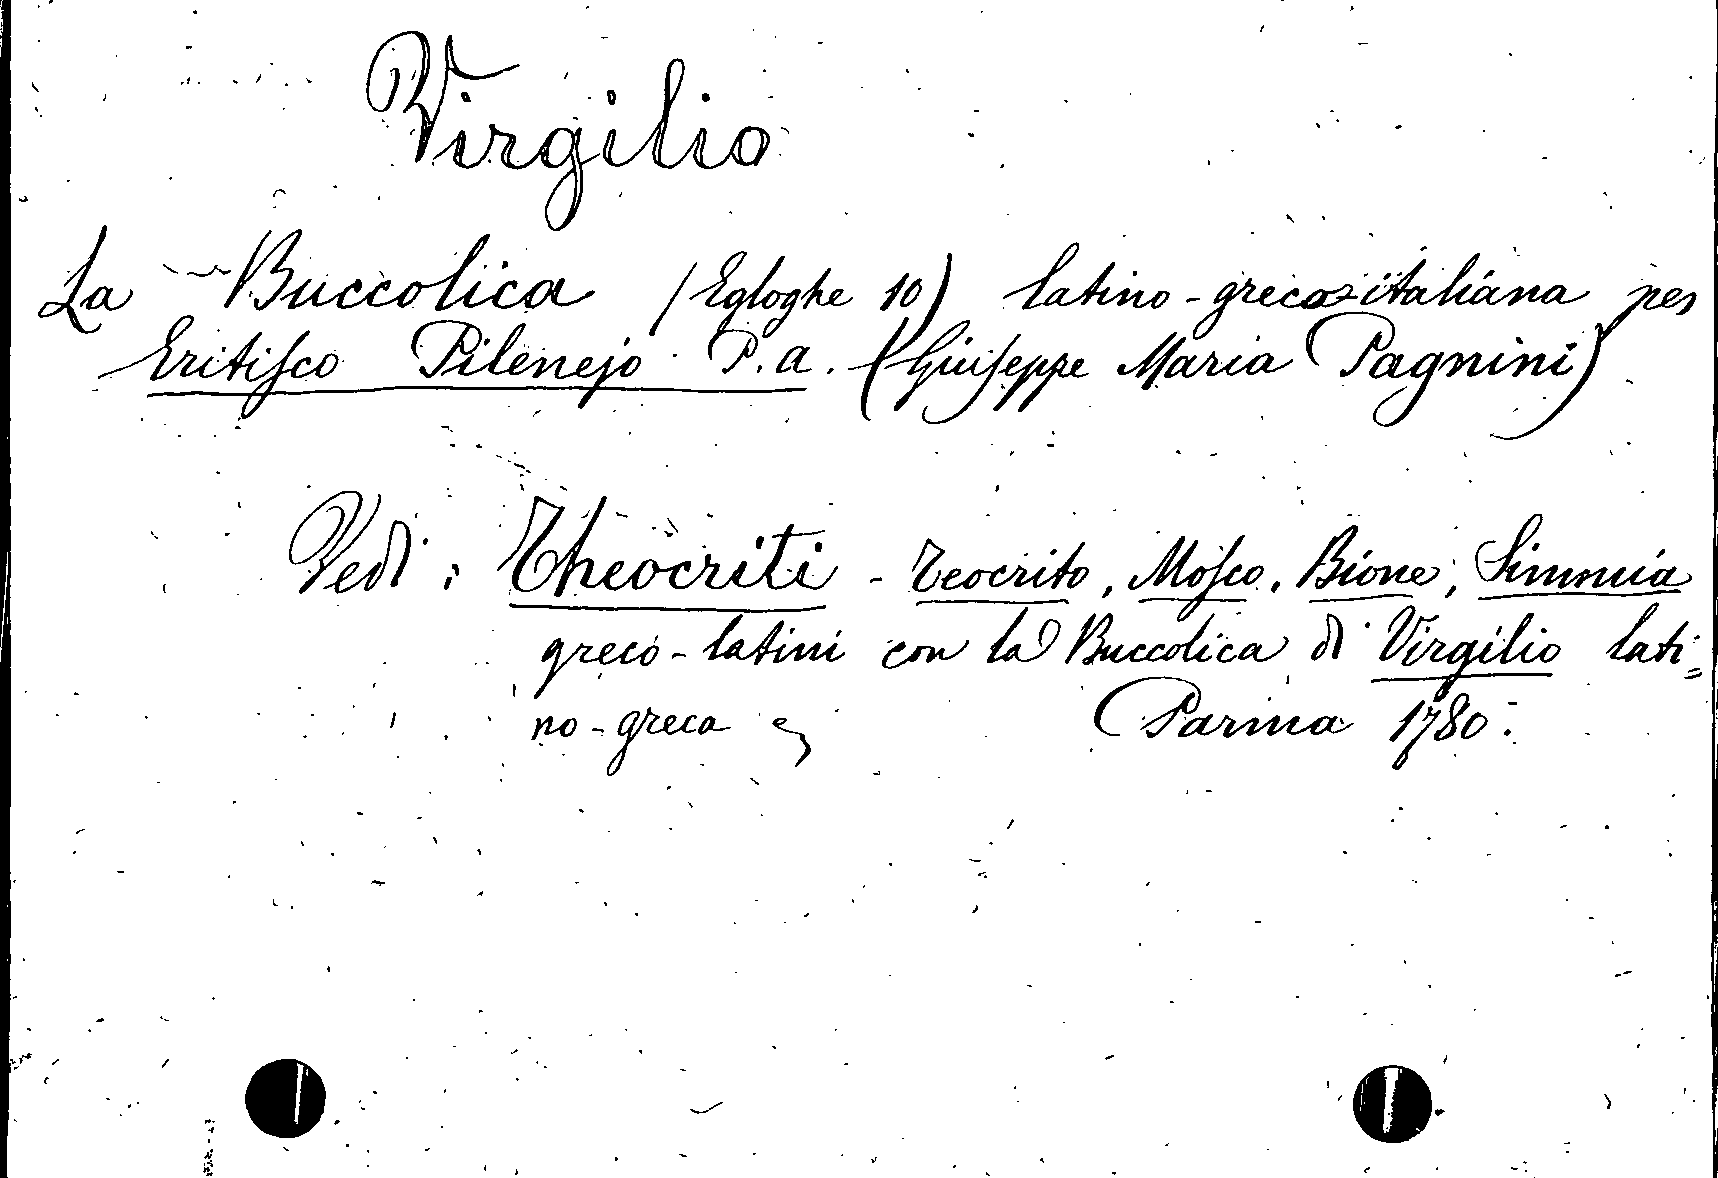 Virgilio
La Buccolica (Egloghe 10) latino-greca-italiana per
Eritisco Pilenejo P. a. (Giuseppe Maria Pagnini)
Vedi: Theocriti - Teocrito, Mosco, Bione, Simmia
greco-latini con la Buccolica di Virgilio lati=
no-greca
Parma 1780.